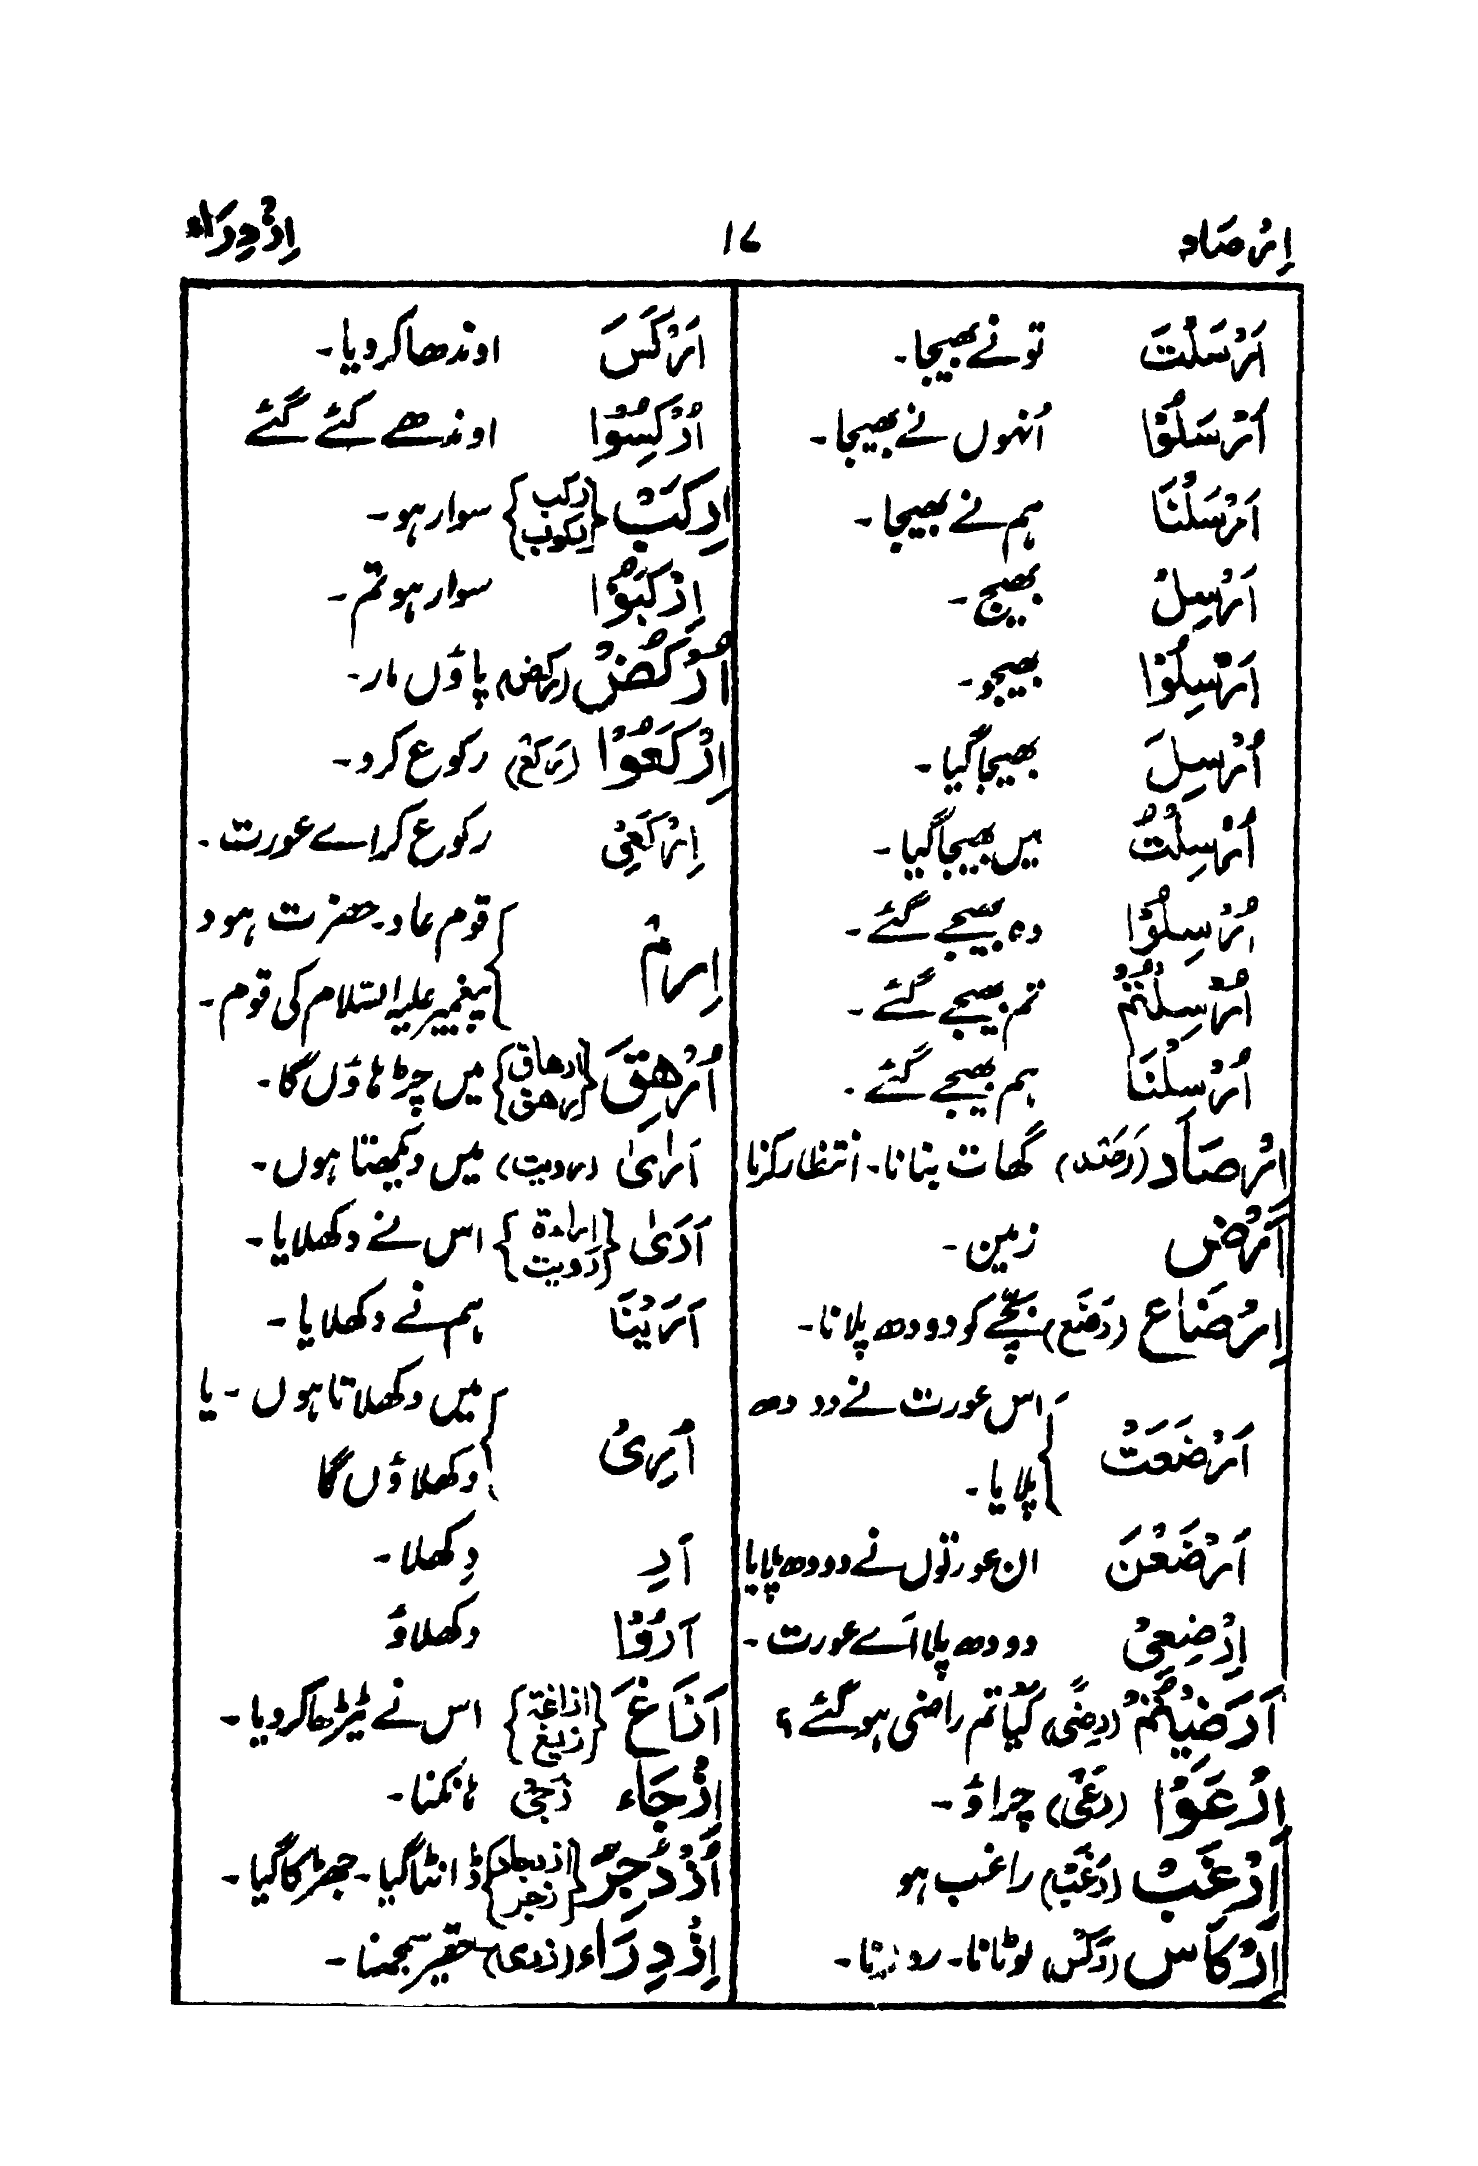 اِرْصَاد ۱۷ اِزْدِرَاء
اَرْسَلْتَ تو نے بھیجا۔
اَرْسَلُوْا اُنہوں نے بھیجا۔
اَرْسَلْنَا ہم نے بھیجا۔
اَرْسِلْ بھیج۔
اَرْسِلُوْا بھیجو۔
اُرْسِلَ بھیجا گیا۔
اُرْسِلْتُ میں بھیجا گیا۔
اُرْسِلُوْا وہ بھیجے گئے۔
اُرْسِلْتُمْ تم بھیجے گئے۔
اُرْسِلْنَا ہم بھیجے گئے۔
اِرْصَاد (رَصَد) گھات بنانا۔ انتظار کرنا
اَرْض زمین۔
اِرْضَاع (رَضَع) بچّے کو دودھ پلانا۔
اَرْضَعَتْ اس عورت نے دودھ
پلایا۔
اَرْضَعْنَ ان عورتوں نے دودھ پلایا
اِرْضِعِیْ دودھ پلا اَے عورت۔
اَرَضِیْتُمْ (رِضًی) کیا تم راضی ہو گئے؟
اِرْعَوْا (رَعْی) چراؤ۔
اِرْغَبْ (رَغَب) راغب ہو
اِرْکَاس (رَکْس) لوٹانا۔
اَرْکَسَ اوندھا کر دیا۔
اُرْکِسُوْا اوندھے کئے گئے
اِرْکَبْ {رکب رکوب} سوار ہو۔
اِرْکَبُوْا سوار ہو تم۔
اُرْکُضْ (رکض) پاؤں مار۔
اِرْکَعُوْا (رَکَع) رکوع کرو۔
اِرْکَعِیْ رکوع کر اے عورت۔
اِرم قوم عاد۔ حضرت ہود
پیغمبر علیہ السّلام کی قوم۔
اُرْهِقَ {ارهاق رهق} میں چڑھاؤں گا۔
اَرٰیٰ (رویت) میں دیکھتا ہوں۔
اَرَیٰ {اراءۃ رویت} اس نے دکھلایا۔
اَرَیْنَا ہم نے دکھلایا۔
اُرِیْ میں دکھلاتا ہوں۔ یا
دکھلاؤں گا
اَرِ دِکھلا۔
اَرُوْا دکھلاؤ
اَزَاغَ {ازاغۃ زیغ} اس نے ٹیڑھا کر دیا۔
اِزْجَاء زَجْیٌ ہانکنا۔
اُزْدُجِرَ {ازدجار زجر} ڈانٹا گیا۔ جھڑکا گیا۔
اِزْدِرَاء (زری) حقیر سمجھنا۔